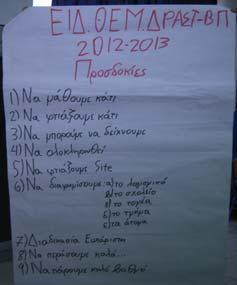 ΕΙΔ. ΘΕΜ. ΔΡΑΣΤ-ΒΠ
2012-2013
Προσδοκίες
1) Να μάθουμε κάτι
2) Να φτιάξουμε κάτι
3) Να μπορούμε να δείχνουμε
4) Να ολοκληρωθεί
5) Να φτιάξουμε Site
6) Να διαφημίσουμε: α) το λογισμικό
β) το σχολείο
γ) το τομέα
δ) το τμήμα
ε) τα άτομα
7) Διαδικασία Ευχάριστη
8) Να περάσουμε καλά...
9) Να πάρουμε καλό βαθμό